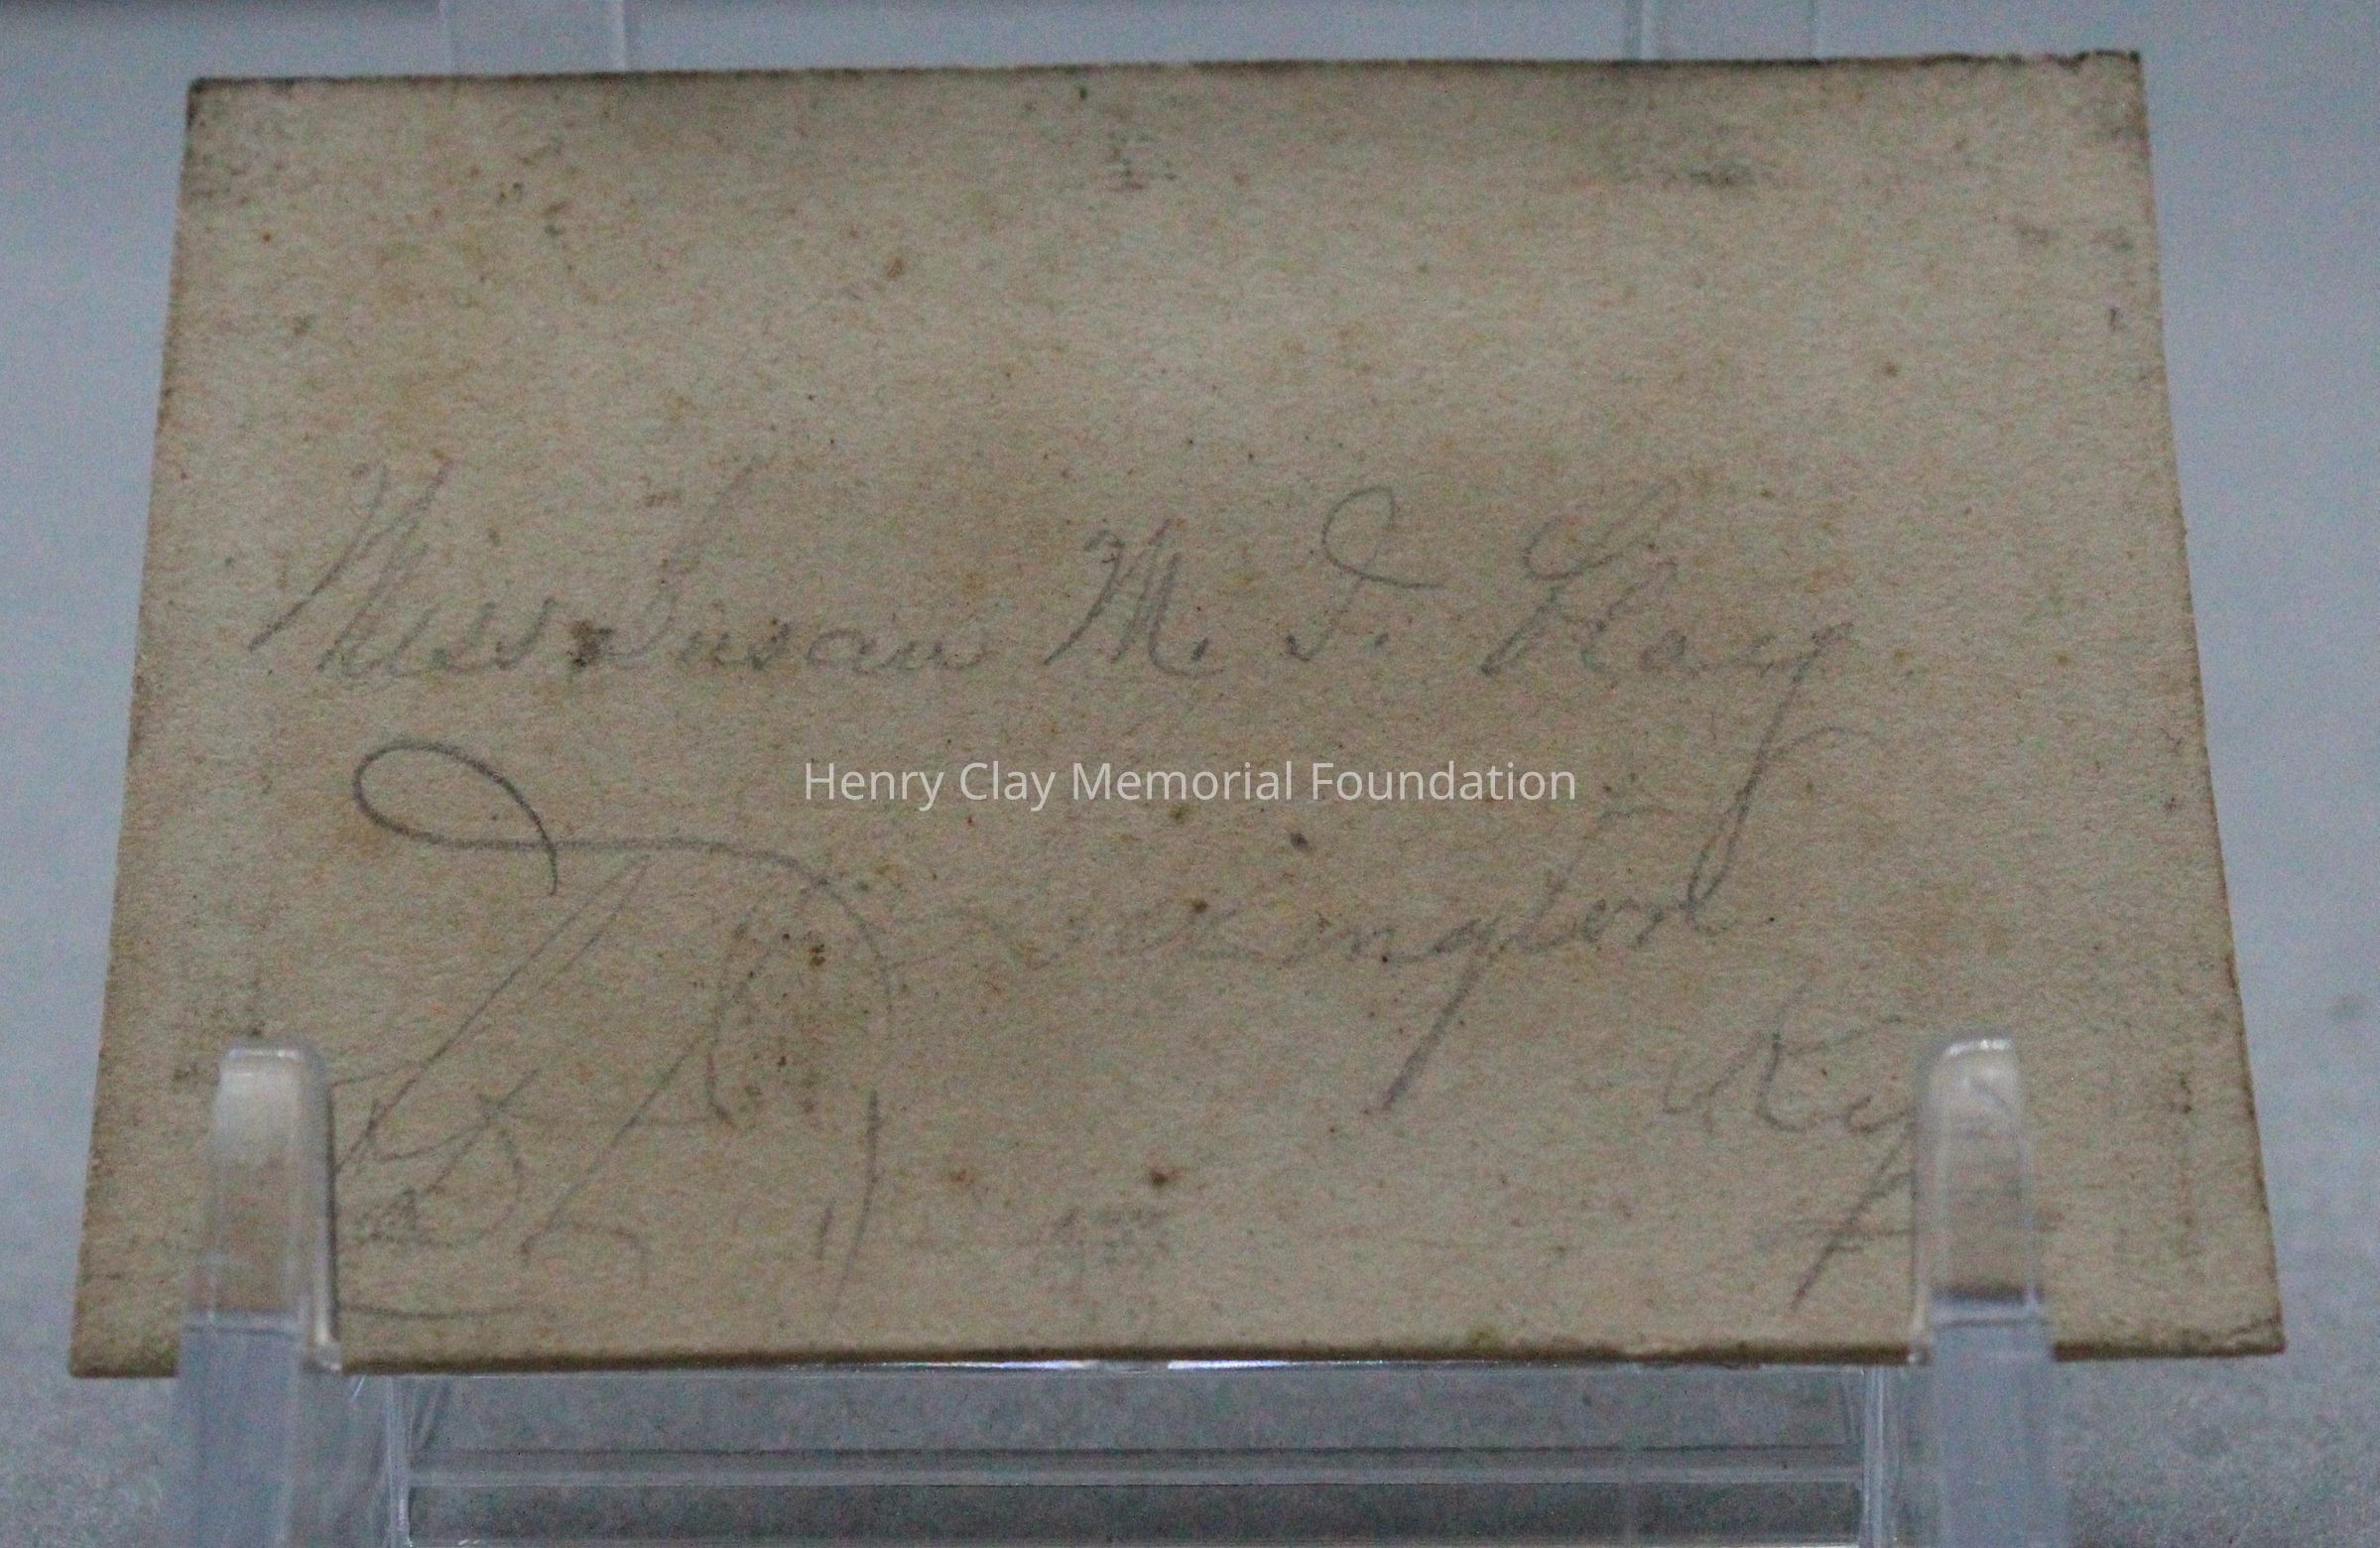 Miss Susan M. I. Clay.
Henry Clay Memorial Foundation
Lexington
Ky